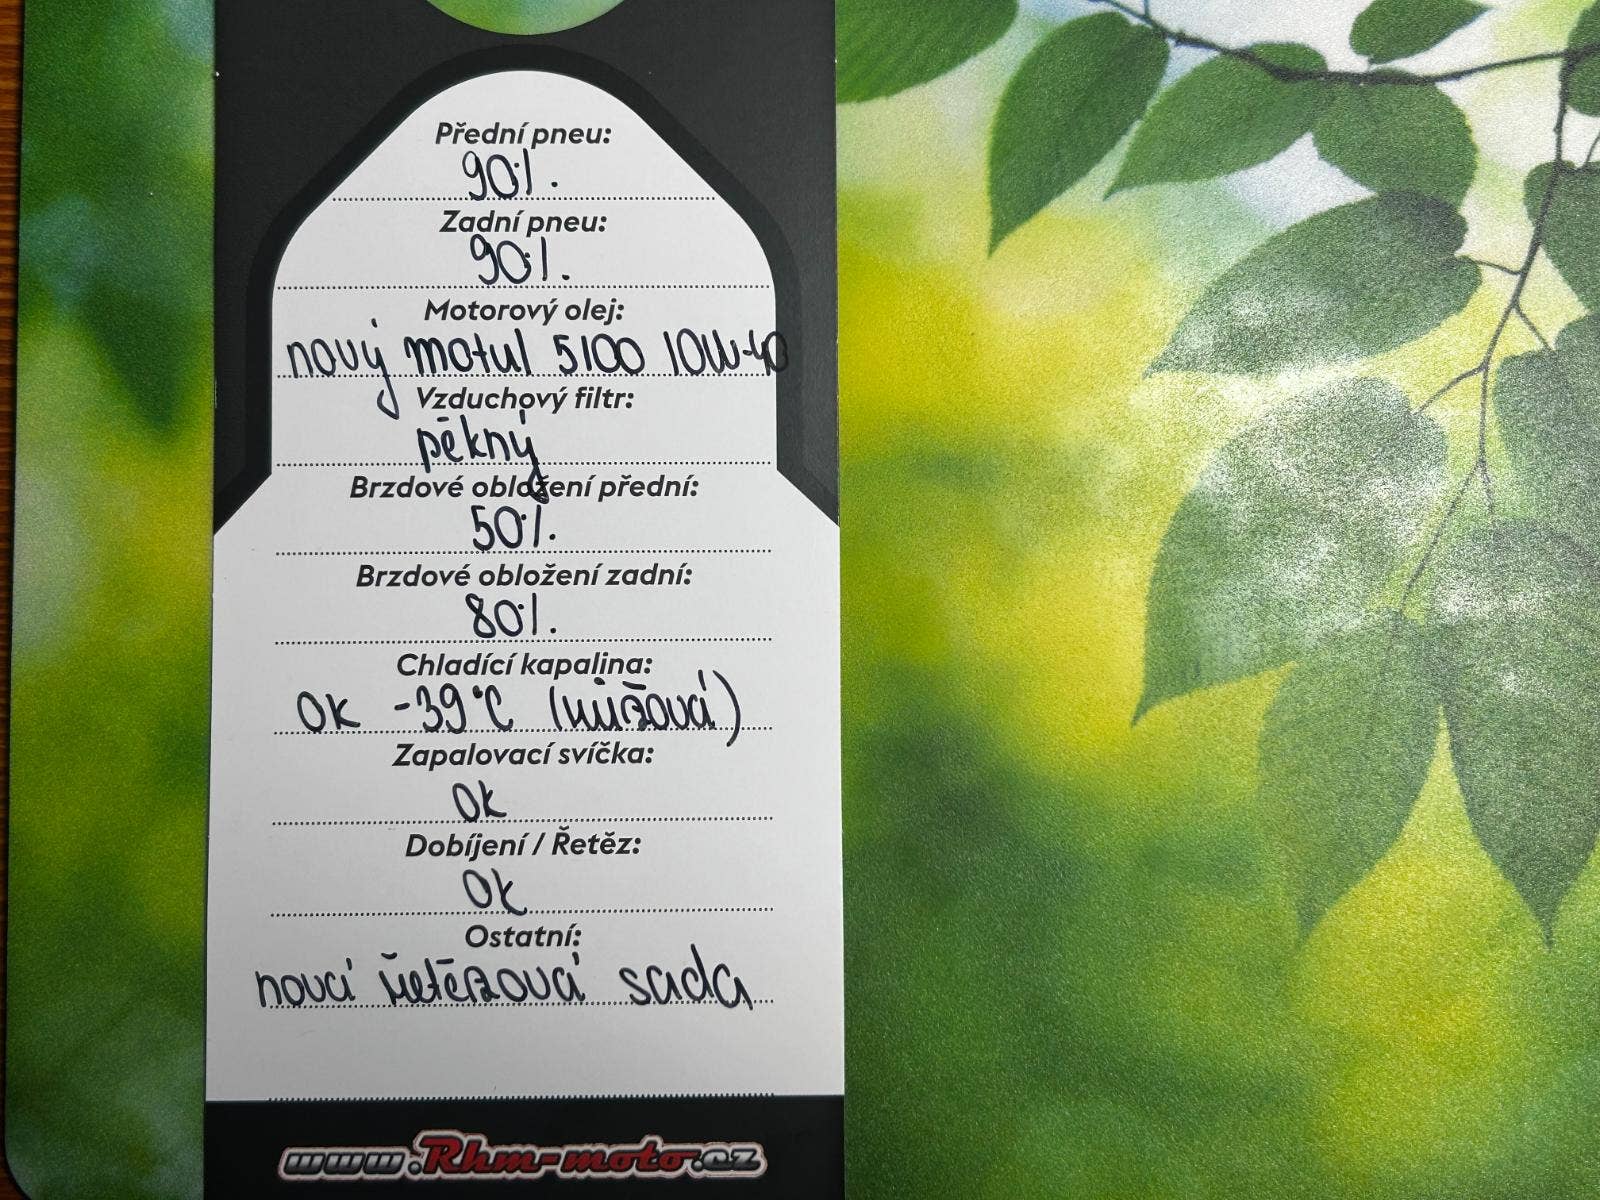 Přední pneu:
90%.
Zadní pneu:
90%.
Motorový olej:
nový motul 5100 10W-40
Vzduchový filtr:
pěkný
Brzdové obložení přední:
50%.
Brzdové obložení zadní:
80%.
Chladící kapalina:
OK -39°C (růžová)
Zapalovací svíčka:
OK
Dobíjení / Řetěz:
OK
Ostatní:
nová řetězová sada
www.Rhm-moto.cz